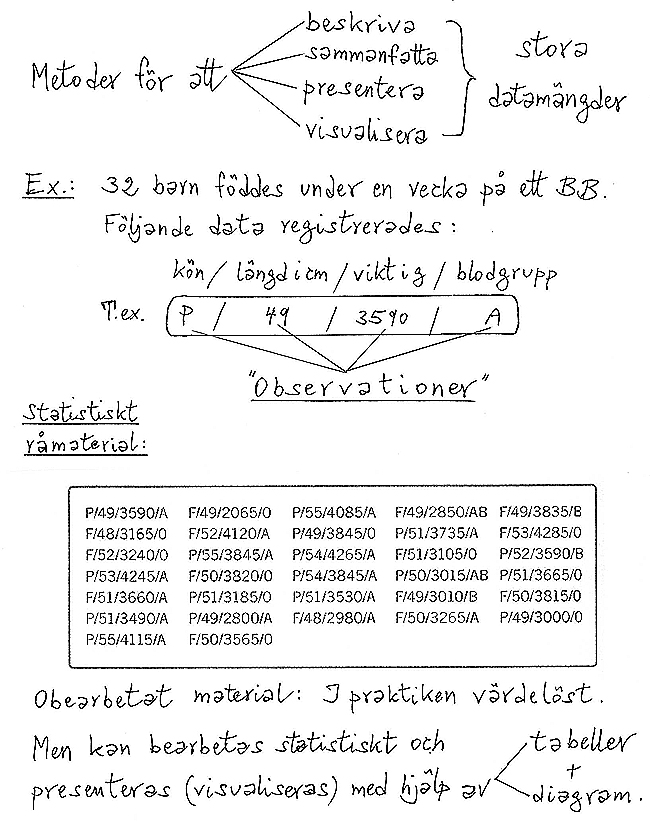 beskriva
sammanfatta
Metoder för att
presentera
visualisera
stora
datamängder
Ex.: 32 barn föddes under en vecka på ett BB.
Följande data registrerades:
kön/längd i cm/vikt i g/blodgrupp
T.ex. P / 49 / 3590 / A
"Observationer"
Statistiskt
råmaterial:
P/49/3590/A F/49/2065/0 P/55/4085/A F/49/2850/AB F/49/3835/B
F/48/3165/0 F/52/4120/A P/49/3845/0 P/51/3735/A F/53/4285/0
F/52/3240/0 P/55/3845/A P/54/4265/A F/51/3105/0 P/52/3590/B
P/53/4245/A F/50/3820/0 P/54/3845/A P/50/3015/AB P/51/3665/0
F/51/3660/A P/51/3185/0 P/51/3530/A F/49/3010/B F/50/3815/0
P/51/3490/A P/49/2800/A F/48/2980/A F/50/3265/A P/49/3000/0
P/55/4115/A F/50/3565/0
Obearbetat material: I praktiken värdelöst.
Men kan bearbetas statistiskt och
presenteras (visualiseras) med hjälp av
tabeller
+
diagram.